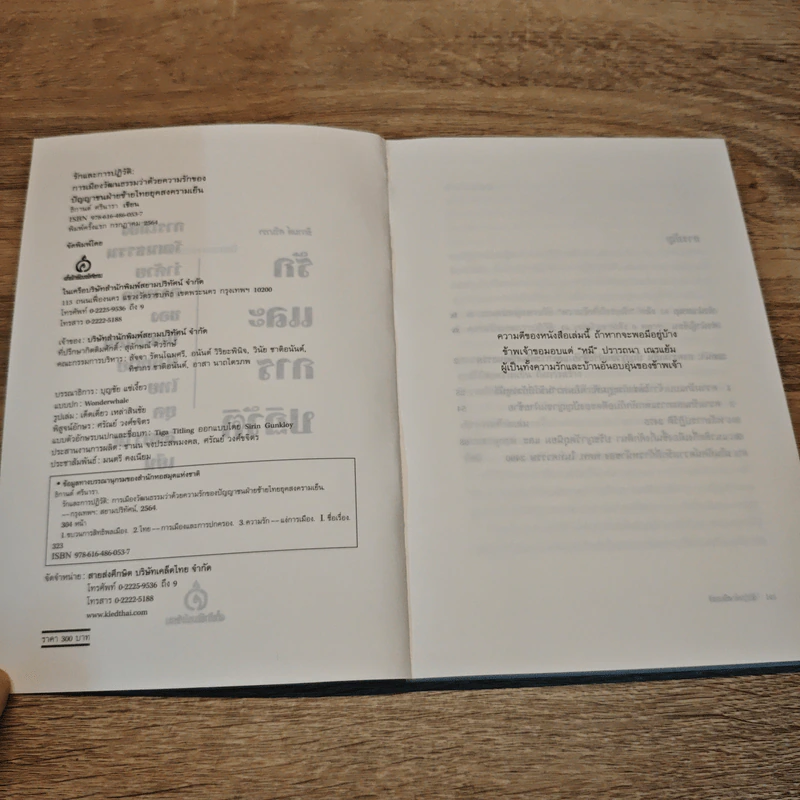 รักและการปฏิวัติ:
การเมืองวัฒนธรรมว่าด้วยความรักของ
ปัญญาชนฝ่ายซ้ายไทยยุคสงครามเย็น
ธิกานต์ ศรีนารา เขียน
ISBN 978-616-486-053-7
พิมพ์ครั้งแรก กรกฎาคม 2564
จัดพิมพ์โดย
ในเครือบริษัทสำนักพิมพ์สยามปริทัศน์ จำกัด
113 ถนนเฟื่องนคร แขวงวัดราชบพิธ เขตพระนคร กรุงเทพฯ 10200
โทรศัพท์ 0-2225-9536 ถึง 9
โทรสาร 0-2222-5188
เจ้าของ : บริษัทสำนักพิมพ์สยามปริทัศน์ จำกัด
ที่ปรึกษากิตติมศักดิ์ : สุลักษณ์ ศิวรักษ์
คณะกรรมการบริหาร : สัจจา รัตนโฉมศรี, อนันต์ วิริยะพินิจ, วินัย ชาติอนันต์,
ทิชากร ชาติอนันต์, อาสา นาไตรภพ
บรรณาธิการ : บุญชัย แซ่เงี้ยว
แบบปก : Wonderwhale
รูปเล่ม : เด็ดเดี่ยว เหล่าสินชัย
พิสูจน์อักษร : ศรัณย์ วงศ์ขจิตร
แบบตัวอักษรบนปกและชื่อบท : Tiga Titling ออกแบบโดย Sirin Gunkloy
ประสานงานการผลิต : ชานน จงประสพมงคล, ศรัณย์ วงศ์ขจิตร
ประชาสัมพันธ์ : มนตรี คงเนียม
• ข้อมูลทางบรรณานุกรมของสำนักหอสมุดแห่งชาติ
ธิกานต์ ศรีนารา.
รักและการปฏิวัติ: การเมืองวัฒนธรรมว่าด้วยความรักของปัญญาชนฝ่ายซ้ายไทยยุคสงครามเย็น.
—กรุงเทพฯ: สยามปริทัศน์, 2564.
304 หน้า
1.ขบวนการสิทธิพลเมือง. 2.ไทย--การเมืองและการปกครอง. 3.ความรัก--แง่การเมือง. I. ชื่อเรื่อง.
323
ISBN 978-616-486-053-7
จัดจำหน่าย : สายส่งศึกษิต บริษัทเคล็ดไทย จำกัด
โทรศัพท์ 0-2225-9536 ถึง 9
โทรสาร 0-2222-5188
www.kledthai.com
ราคา 300 บาท
ความดีของหนังสือเล่มนี้ ถ้าหากจะพอมีอยู่บ้าง
ข้าพเจ้าขอมอบแด่ "หมี" ปรารถนา เณรแย้ม
ผู้เป็นทั้งความรักและบ้านอันอบอุ่นของข้าพเจ้า